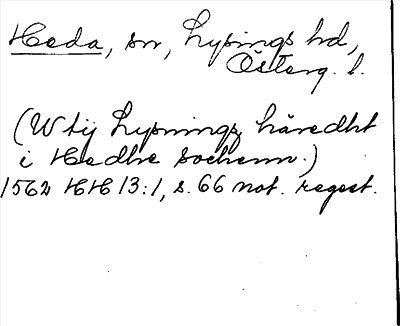 Heda, sn, Lysings hd,
Österg. l.
(Wtij Lysningz häredht
i Hedhe sochenn.)
1562 HH 13:1, s. 66 not. regest.